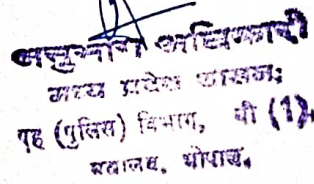 अनुभाग अधिकारी
मध्य प्रदेश शासन,
गृह (पुलिस) विभाग, बी (1),
मंत्रालय, भोपाल.